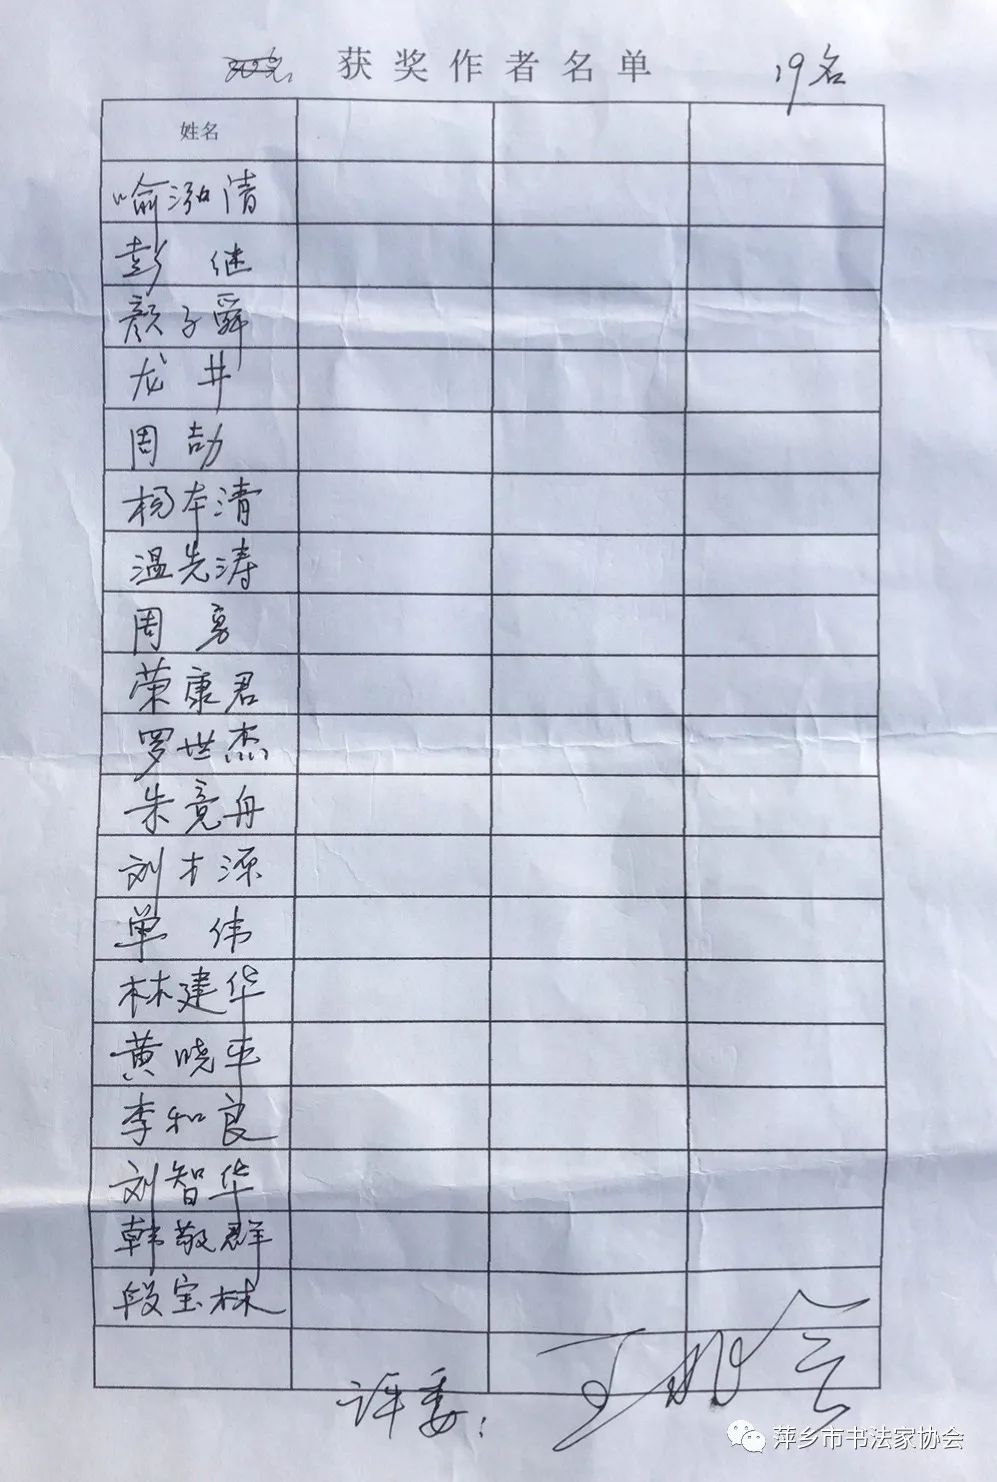 获奖作者名单 19名
姓名
喻泓清
彭继
颜子舜
龙井
周劼
杨本清
温先涛
周勇
荣康君
罗世杰
朱竟舟
刘才源
单伟
林建华
黄晓平
李和良
刘智华
韩敬群
段宝林
评委：
萍乡市书法家协会